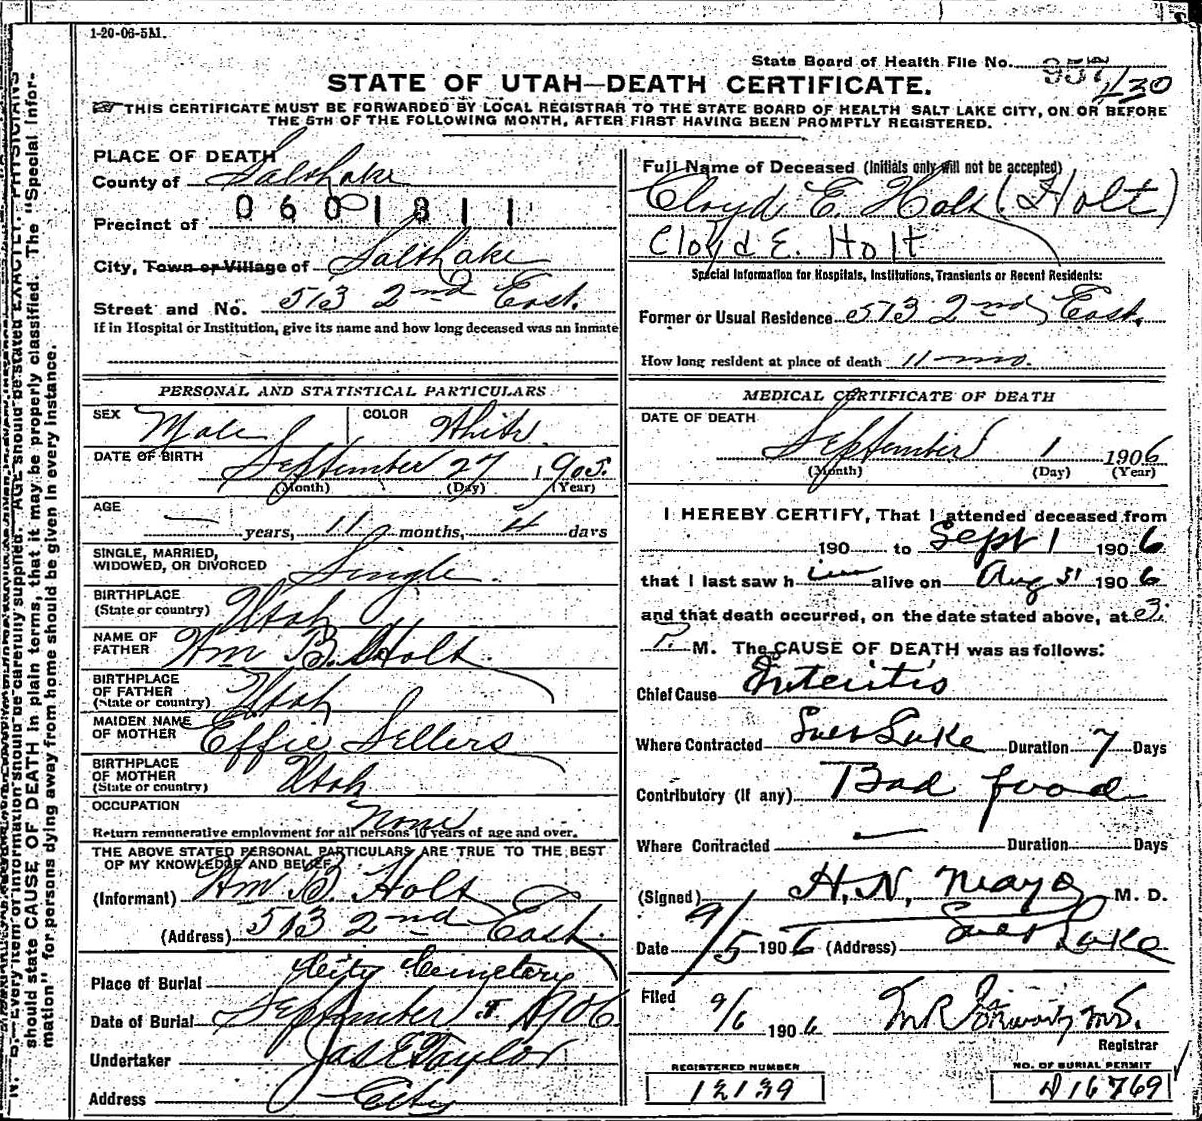 1-20-06-5M.
State Board of Health File No. 957 1130
STATE OF UTAH—DEATH CERTIFICATE.
THIS CERTIFICATE MUST BE FORWARDED BY LOCAL REGISTRAR TO THE STATE BOARD OF HEALTH SALT LAKE CITY, ON OR BEFORE
THE 5TH OF THE FOLLOWING MONTH, AFTER FIRST HAVING BEEN PROMPTLY REGISTERED.
PLACE OF DEATH
County of Salt Lake
Precinct of 0601311
City, Town or Village of Salt Lake
Street and No. 513 2nd East.
If in Hospital or Institution, give its name and how long deceased was an inmate
PERSONAL AND STATISTICAL PARTICULARS
SEX Male COLOR White.
DATE OF BIRTH September 27 1905.
(Month) (Day) (Year)
AGE
— years, 11 months, 4 days
SINGLE, MARRIED,
WIDOWED, OR DIVORCED Single.
BIRTHPLACE
(State or country) Utah
NAME OF
FATHER Wm B. Holt
BIRTHPLACE
OF FATHER
(State or country) Utah
MAIDEN NAME
OF MOTHER Effie Sellers
BIRTHPLACE
OF MOTHER
(State or country) Utah
OCCUPATION None
Return remunerative employment for all persons 10 years of age and over.
THE ABOVE STATED PERSONAL PARTICULARS ARE TRUE TO THE BEST
OF MY KNOWLEDGE AND BELIEF
(Informant) Wm B. Holt
(Address) 513 2nd East
Place of Burial City Cemetery
Date of Burial September 1906
Undertaker Jas E Taylor
Address City
Full Name of Deceased (Initials only will not be accepted)
Cloyd E. Holt (Holt)
Cloyd E. Holt
Special Information for Hospitals, Institutions, Transients or Recent Residents:
Former or Usual Residence 513 2nd East.
How long resident at place of death 11 mo.
MEDICAL CERTIFICATE OF DEATH
DATE OF DEATH
September 1 1906
(Month) (Day) (Year)
I HEREBY CERTIFY, That I attended deceased from
190 to Sept 1 1906
that I last saw him alive on Aug 31 1906
and that death occurred, on the date stated above, at 3.
P. M. The CAUSE OF DEATH was as follows:
Chief Cause Enteritis
Where Contracted Salt Lake Duration 7 Days
Contributory (If any) Bad food
Where Contracted — Duration Days
(Signed) H. N. Mayo M. D.
Date 9/5 1906 (Address) Salt Lake
Filed 9/6 1906
Registrar
REGISTERED NUMBER
12139
NO. OF BURIAL PERMIT
16769
N. B.—Every item of information should be carefully supplied. AGE should be stated EXACTLY. PHYSICIANS
should state CAUSE OF DEATH in plain terms, that it may be properly classified. The "Special Infor-
mation" for persons dying away from home should be given in every instance.